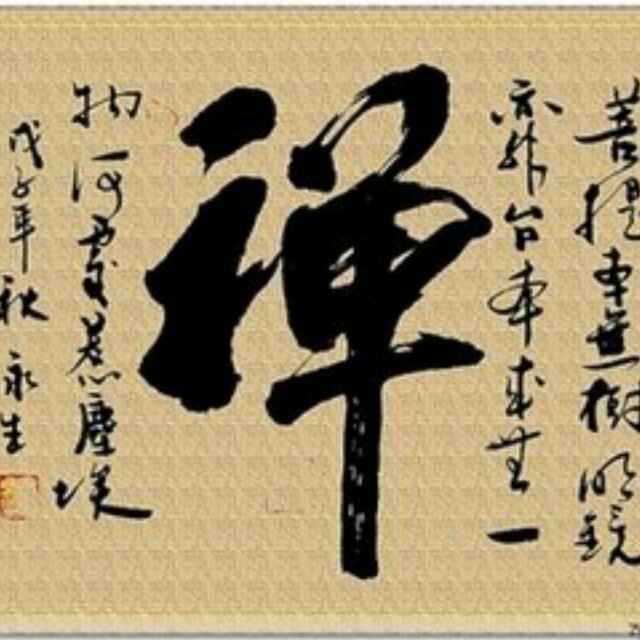 菩提本無樹明鏡
亦非台本來無一
禪
物何處惹塵埃
戊子年秋永生